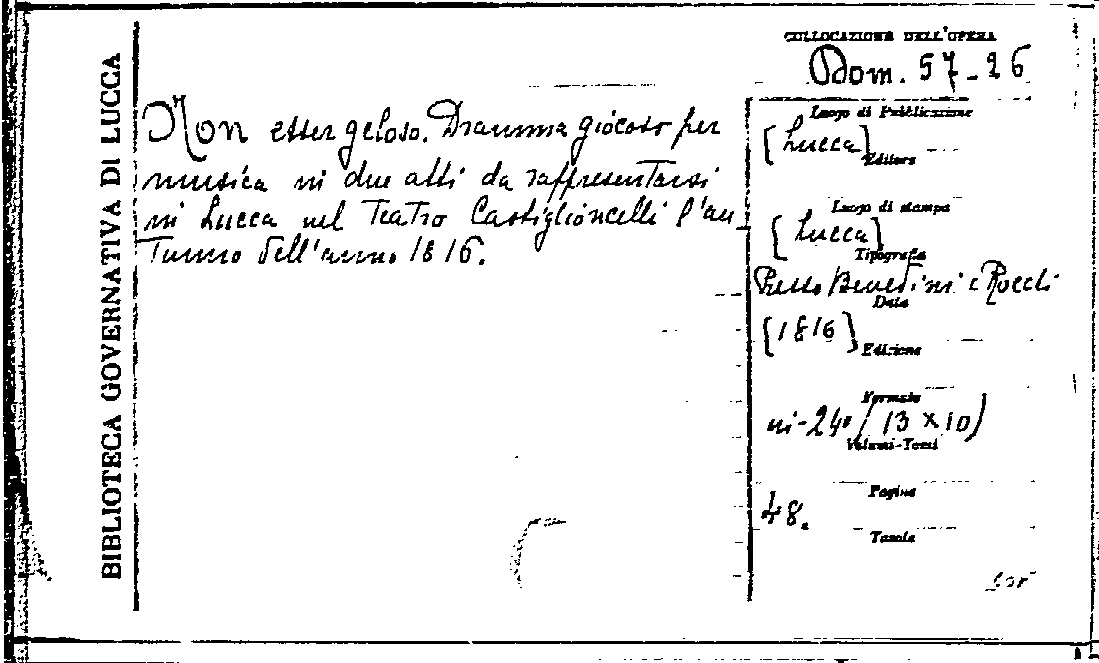 BIBLIOTECA GOVERNATIVA DI LUCCA
COLLOCAZIONE DELL'OPERA
Dom. 57-26
Non esser geloso. Dramma giocoso per
musica in due atti da rappresentarsi
in Lucca nel Teatro Castiglioncelli l'au
tunno dell'anno 1816.
Luogo di Pubblicazione
[Lucca]
Editore
Luogo di stampa
[Lucca]
Tipografia
Presso Benedini e Rocchi
Data
[1816]
Edizione
Formato
in-24° (13 x 10)
Volumi-Tomi
Pagine
48.
Tavole